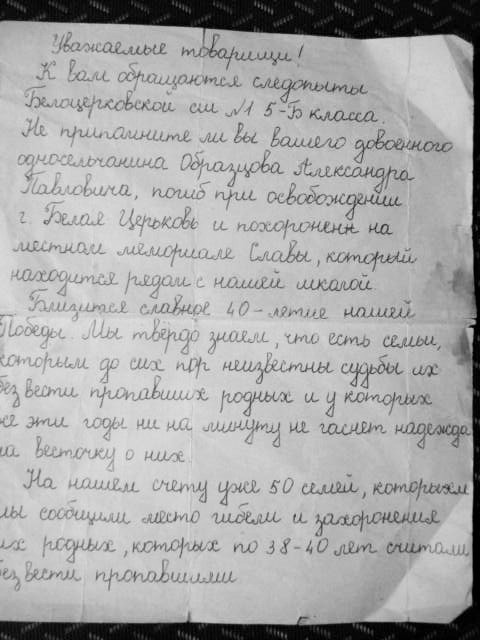 Уважаемые товарищи!
К вам обращаются следопыты
Белоцерковской сш №1 5-Б класса.
Не припомните ли вы вашего довоенного
односельчанина Образцова Александра
Павловича, погиб при освобождении
г. Белая Церьковь и похоронен на
местном мемориале Славы, который
находится рядом с нашей школой.
Близится славное 40-летие нашей
Победы. Мы твёрдо знаем, что есть семьи,
которым до сих пор неизвестны судьбы их
без вести пропавших родных и у которых
все эти годы ни на минуту не гаснет надежда
на весточку о них.
На нашем счету уже 50 семей, которым
мы сообщили место гибели и захоронения
их родных, которых по 38-40 лет считали
без вести пропавшими